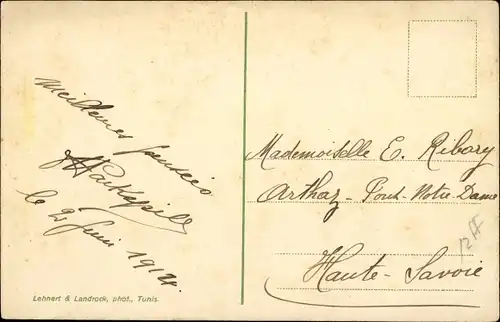 Meilleures pensées
le 2 Juin 1912.
Lehnert & Landrock, phot., Tunis.
Mademoiselle E. Ribary
Arthaz - Pont-Notre-Dame
Haute-Savoie
12 ff